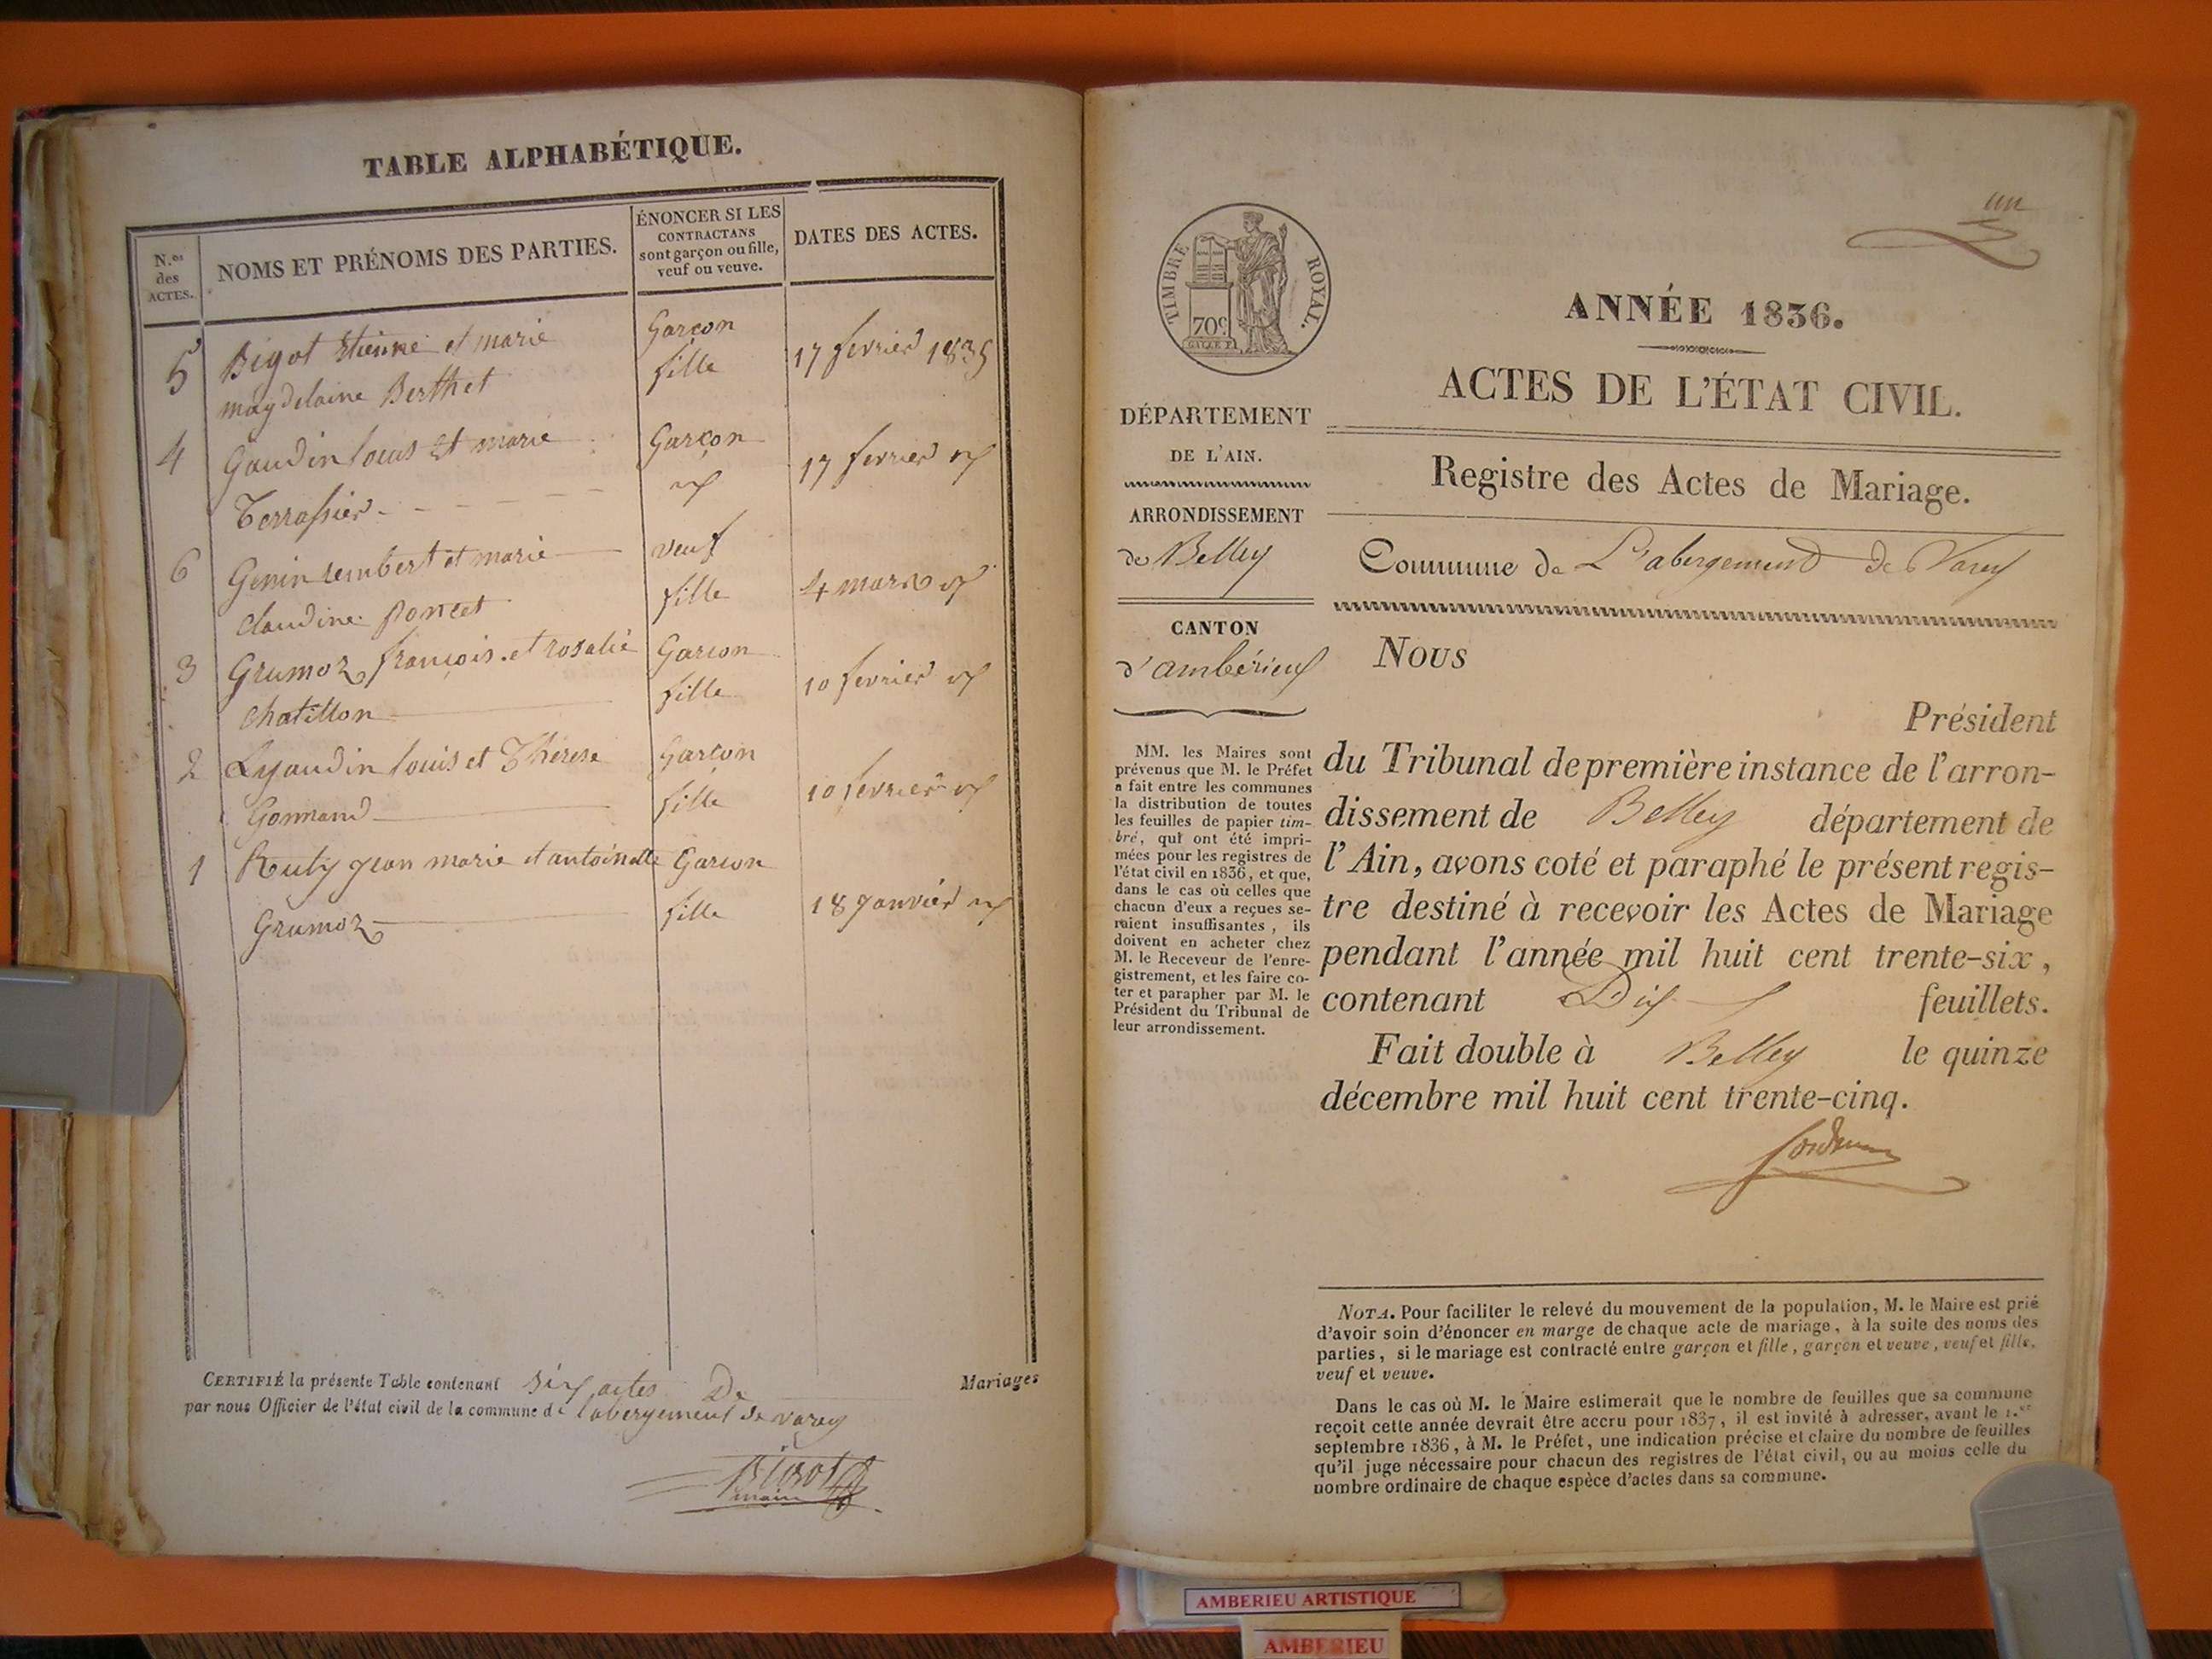 TABLE ALPHABÉTIQUE.
N.os des ACTES.
NOMS ET PRÉNOMS DES PARTIES.
ÉNONCER SI LES
CONTRACTANS
sont garçon ou fille,
veuf ou veuve.
DATES DES ACTES.
5 Bigot Etienne et marie Garcon 17 fevrier 1835
magdelaine Berthet fille
4 Gaudin louis et marie Garcon 17 fevrier
Terrassier
6 Genin rembert et marie veuf 4 mars
claudine poncet fille
3 Grumoz françois et rosalie Garcon 10 fevrier
Chatillon fille
2 Lyaudin louis et Therese Garcon 10 fevrier
Gonnand fille
1 Ruty jean marie et antoinette Garcon 18 janvier
Grumoz fille
CERTIFIÉ la présente Table contenant six actes De Mariages
par nous Officier de l'état civil de la commune de l'abergement de varey
Bigot
maire
un
TIMBRE ROYAL.
70c
ANNÉE 1836.
ACTES DE L'ÉTAT CIVIL.
DÉPARTEMENT
DE L'AIN.
ARRONDISSEMENT
de Belley
CANTON
d'ambérieux
Registre des Actes de Mariage.
Commune de L'abergement de Varey
MM. les Maires sont
prévenus que M. le Préfet
a fait entre les communes
la distribution de toutes
les feuilles de papier tim-
bré, qui ont été impri-
mées pour les registres de
l'état civil en 1836, et que,
dans le cas où celles que
chacun d'eux a reçues se-
raient insuffisantes, ils
doivent en acheter chez
M. le Receveur de l'enre-
gistrement, et les faire co-
ter et parapher par M. le
Président du Tribunal de
leur arrondissement.
Nous
Président
du Tribunal de première instance de l'arron-
dissement de Belley département de
l'Ain, avons coté et paraphé le présent regis-
tre destiné à recevoir les Actes de Mariage
pendant l'année mil huit cent trente-six,
contenant Dix feuillets.
Fait double à Belley le quinze
décembre mil huit cent trente-cinq.
NOTA. Pour faciliter le relevé du mouvement de la population, M. le Maire est prié
d'avoir soin d'énoncer en marge de chaque acte de mariage, à la suite des noms des
parties, si le mariage est contracté entre garçon et fille, garçon et veuve, veuf et fille,
veuf et veuve.
Dans le cas où M. le Maire estimerait que le nombre de feuilles que sa commune
reçoit cette année devrait être accru pour 1837, il est invité à adresser, avant le 1.er
septembre 1836, à M. le Préfet, une indication précise et claire du nombre de feuilles
qu'il juge nécessaire pour chacun des registres de l'état civil, ou au moins celle du
nombre ordinaire de chaque espèce d'actes dans sa commune.
AMBERIEU ARTISTIQUE
AMBERIEU